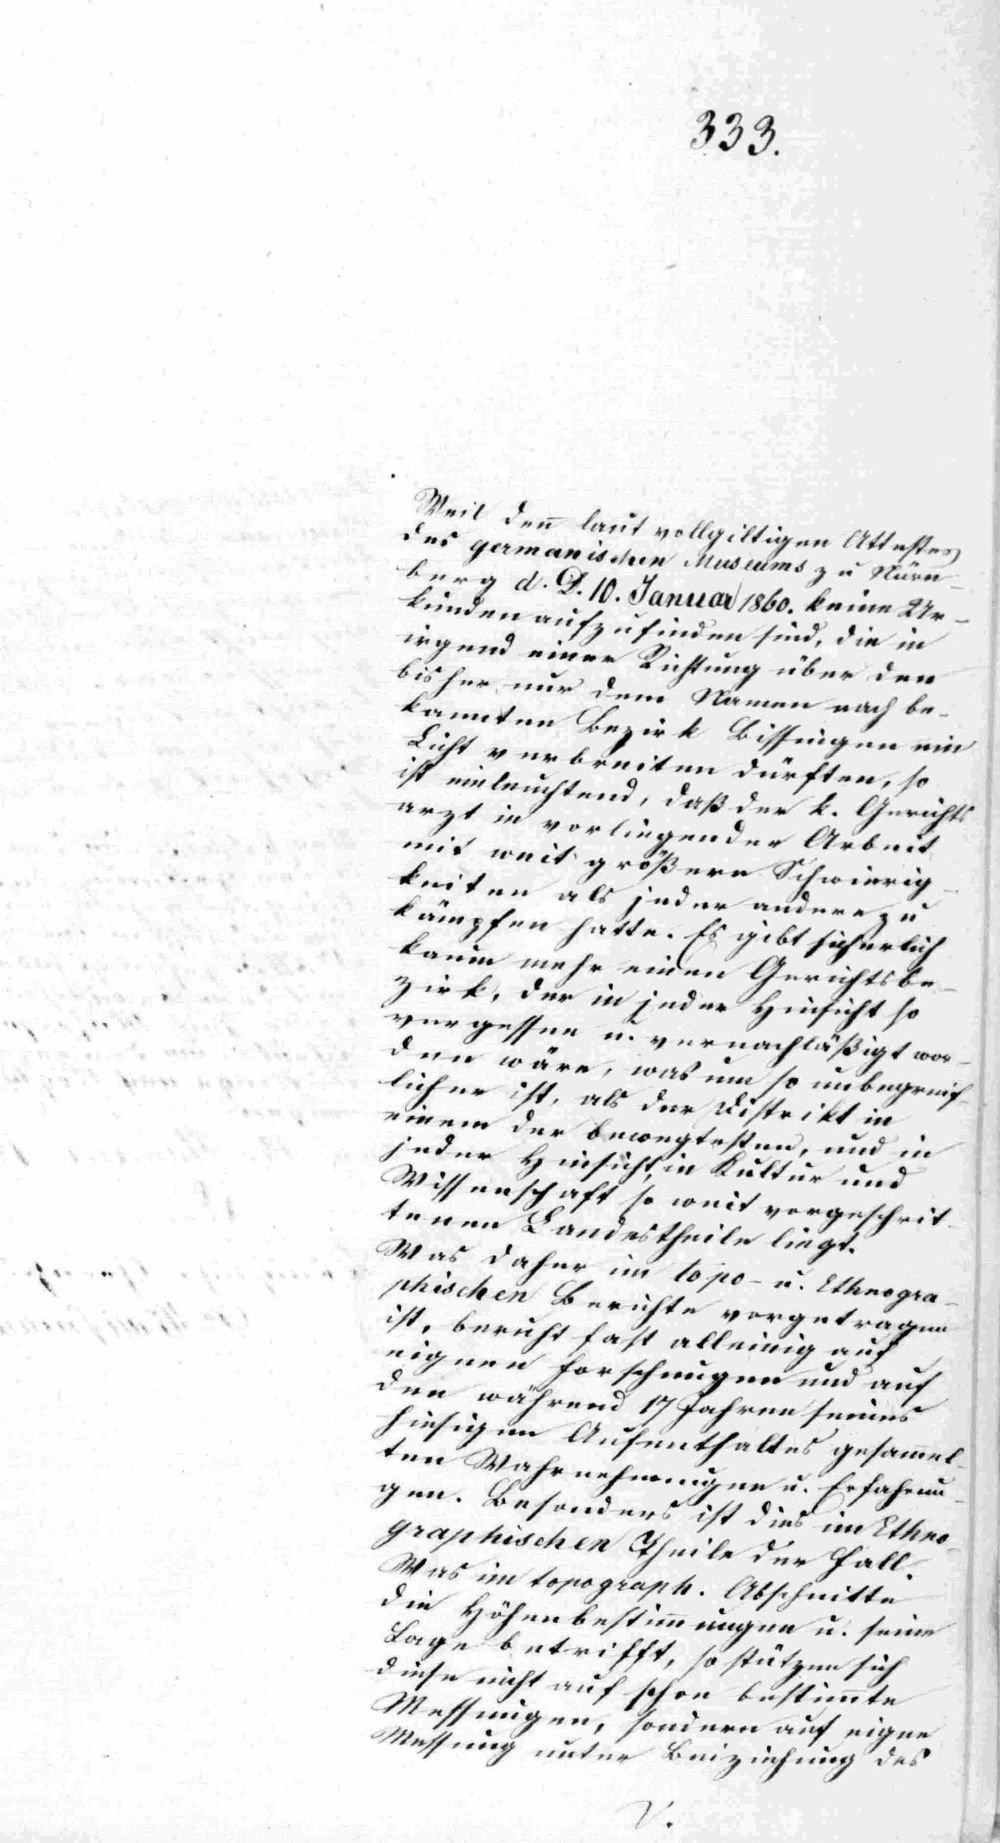 333.
Weil den laut vollgiltigen Attestes
des germanischen Museums zu Nürn-
berg d. D. 10. Januar 1860. keine Ur-
kunden aufzufinden sind, die in
irgend einer Richtung über den
bisher nur dem Namen nach be-
kannten Bezirk Bissingen ein
Licht verbreiten dürften, so
ist einleuchtend, daß der k. Gerichts
arzt in vorliegender Arbeit
mit weit größern Schwierig-
keiten als jeder andere zu
kämpfen hatte. Es gibt sicherlich
kaum mehr einen Gerichtsbe-
zirk, der in jeder Hinsicht so
vergessen u. vernachläßigt wor-
den wäre, was um so unbegreif-
licher ist, als der Distrikt in
einem der bewegtesten, und in
jeder Hinsicht, in Kultur und
Wissenschaft so weit vorgeschrit-
tenen Landestheile liegt.
Was daher im topo- u. Ethnogra-
phischen Berichte vorgetragen
ist, beruht fast alleinig auf
eignen Forschungen und auf
den während 17 Jahren seines
hiesigen Aufenthaltes gesam̄el-
ten Wahrnehmungen u. Erfahrun-
gen. Besonders ist dies im Ethno-
graphischen Theile der Fall.
Was im topograph. Abschnitte
die Höhenbestim̄ungen u. seine
Lage betrifft, so stützen sich
diese nicht auf schon bestim̄te
Messungen, sondern auf eigne
Messung unter Beiziehung des